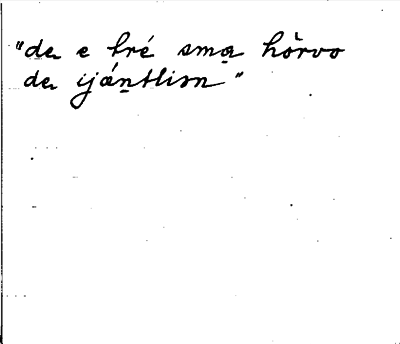 "de e tré sma̱ hòrvo
de ijá̱ntlism"